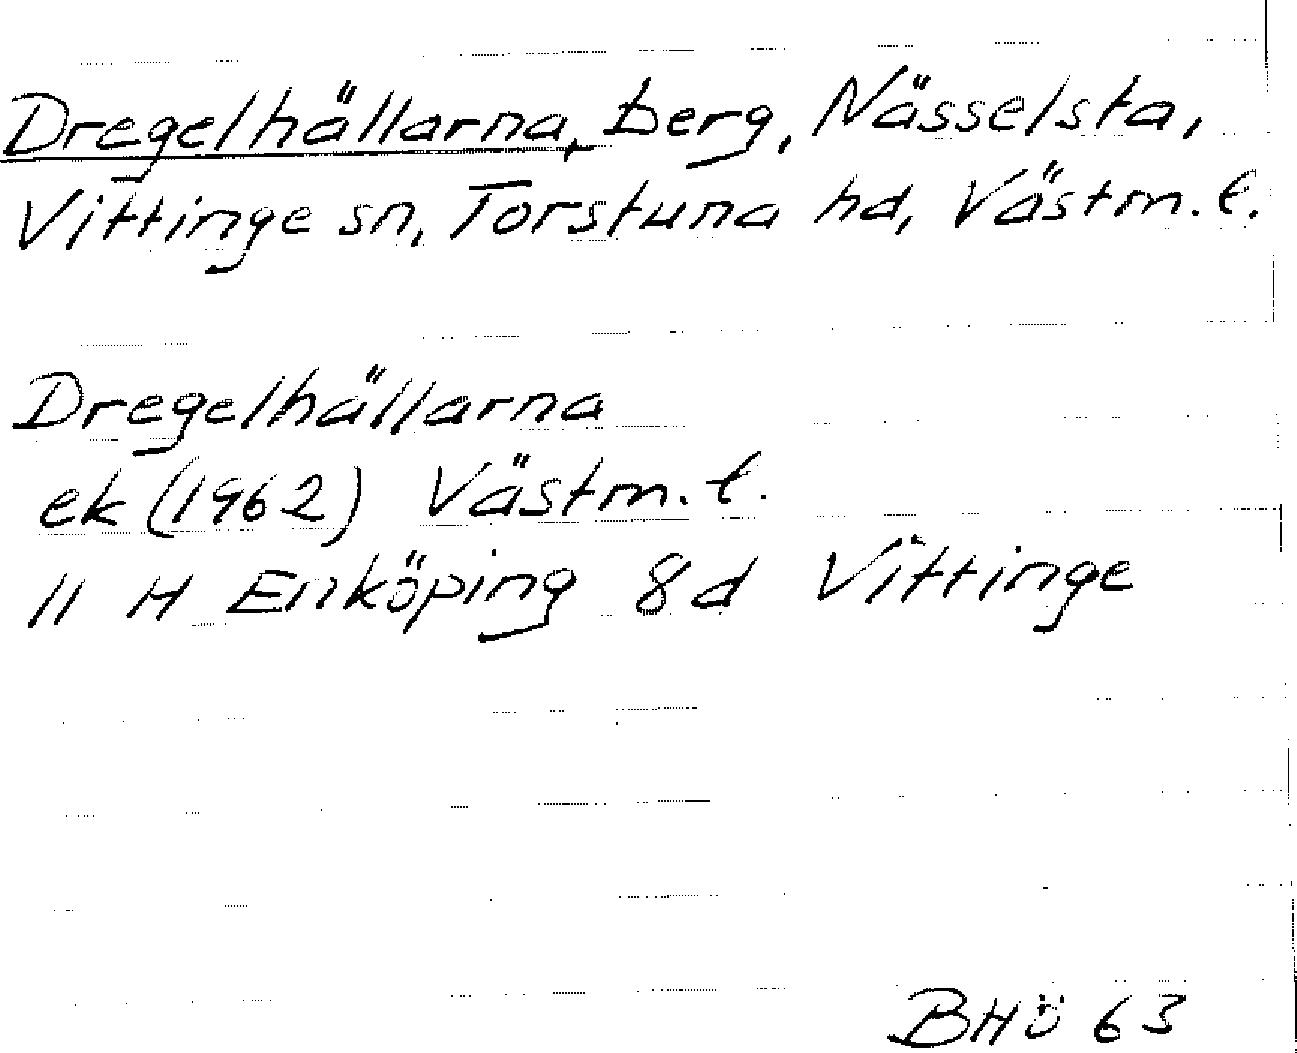 Dregelhällarna, berg, Nässelsta,
Vittinge sn, Torstuna hd, Västm. l.
Dregelhällarna
ek (1962) Västm. l.
11 H Enköping 8d Vittinge
BHÖ 63